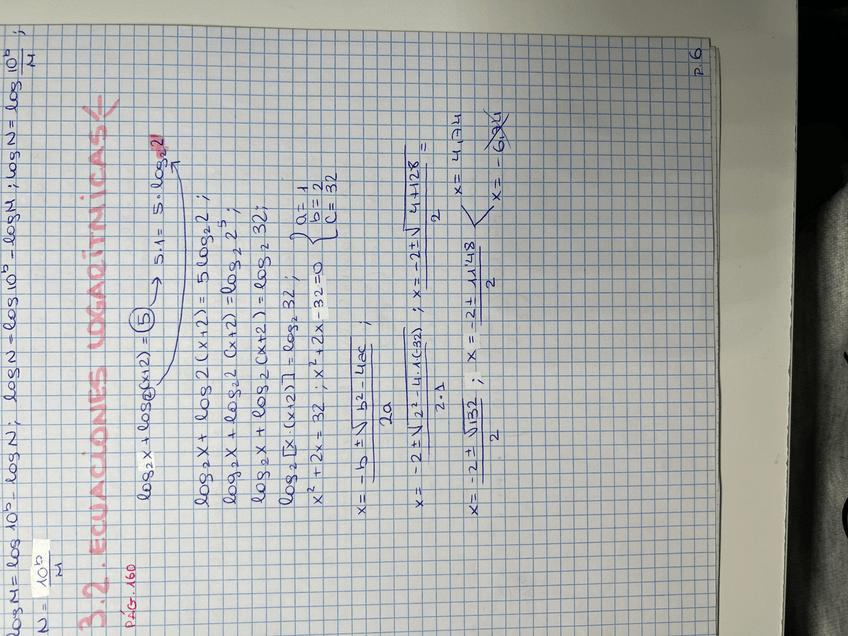 log M = log 10ᵇ - log N; log N = log 10ᵇ - log M; log N = log 10ᵇ/M;
N = 10ᵇ/M
3.2. ECUACIONES LOGARÍTMICAS
PÁG. 160
log₂x + log₂(x+2) = 5 → 5·1 = 5·log₂2
log₂x + log₂(x+2) = 5log₂2;
log₂x + log₂(x+2) = log₂2⁵;
log₂x + log₂(x+2) = log₂32;
log₂[x·(x+2)] = log₂32;
x² + 2x = 32; x² + 2x - 32 = 0 { a = 1 b = 2 c = 32
x = -b ± √b² - 4ac / 2a;
x = -2 ± √2² - 4·1·(-32) / 2·1; x = -2 ± √4 + 128 / 2 =
x = -2 ± √132 / 2; x = -2 ± 11'48 / 2
x = 4,74
x = -6,74
P. 6